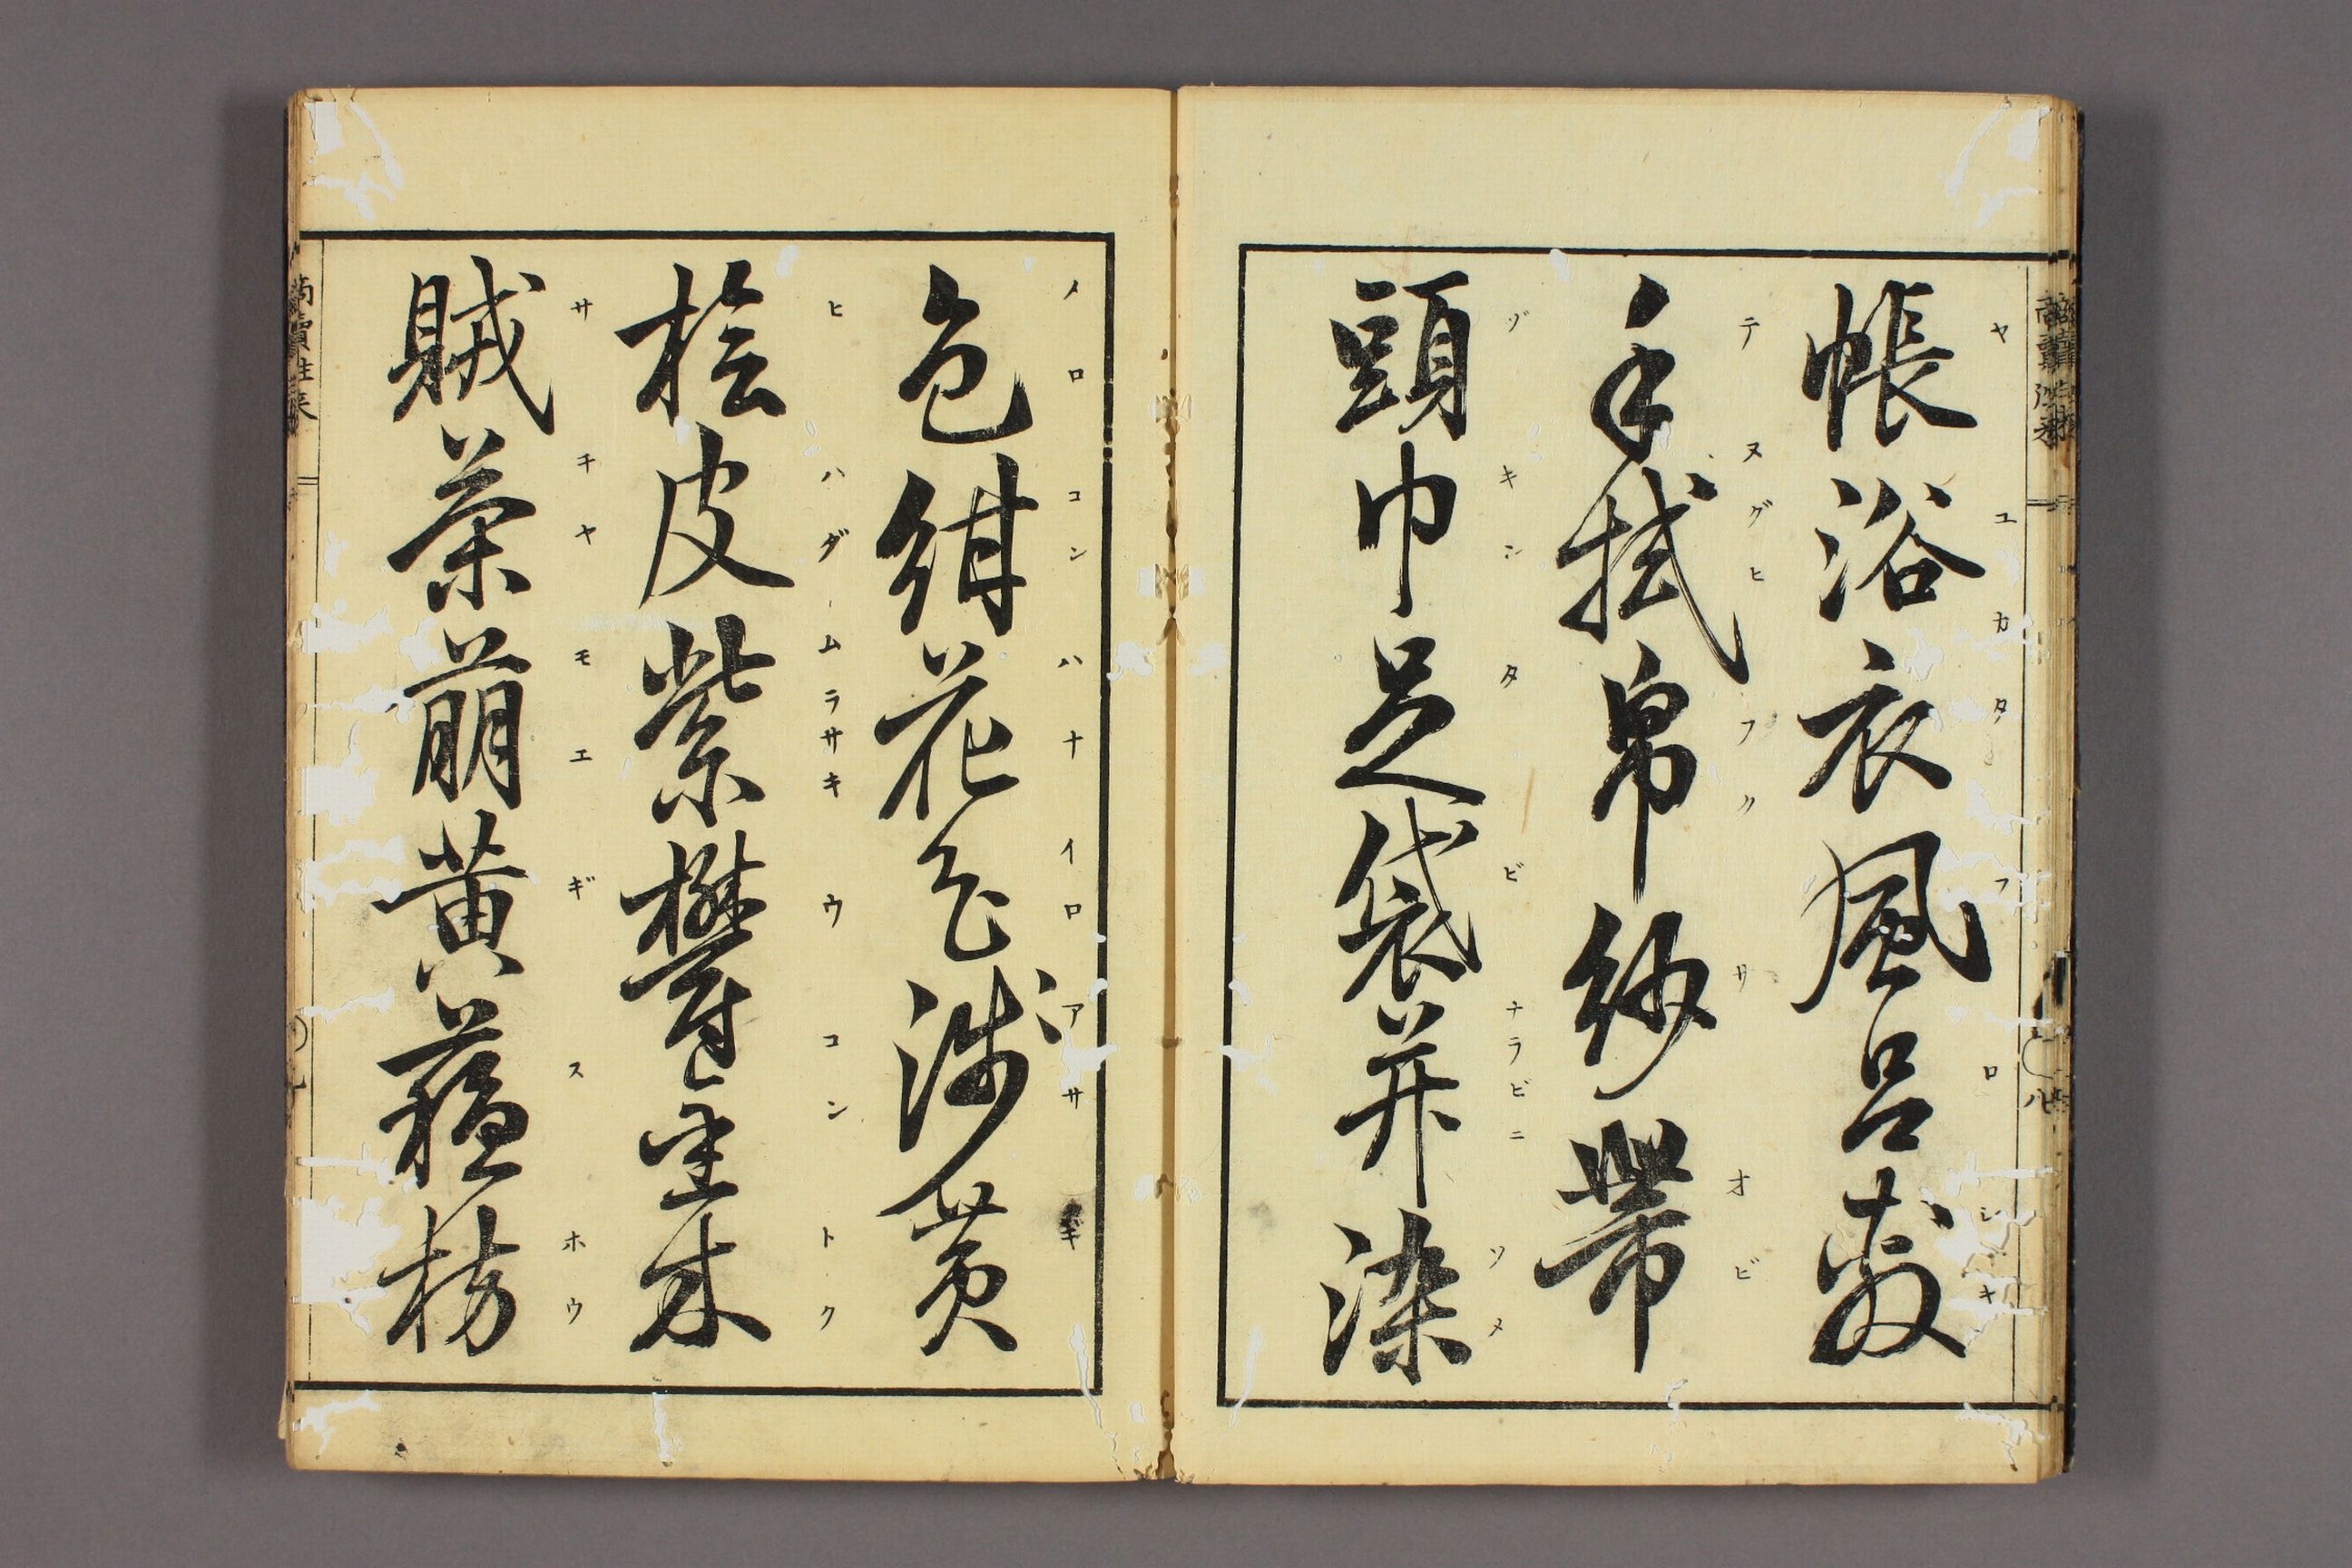 帳浴衣風呂敷
ヤユカタフロシキ
手拭帛紗帯
テヌグヒフクサオビ
頭巾足袋并染
ヅキンタビナラビニソメ
色紺花色浅黄
ノロコンハナイロアサギ
桧皮紫欝金木
ヒハダムラサキウコントク
賊茶萌黄蘓枋
サチヤモエギスホウ
商賣往来